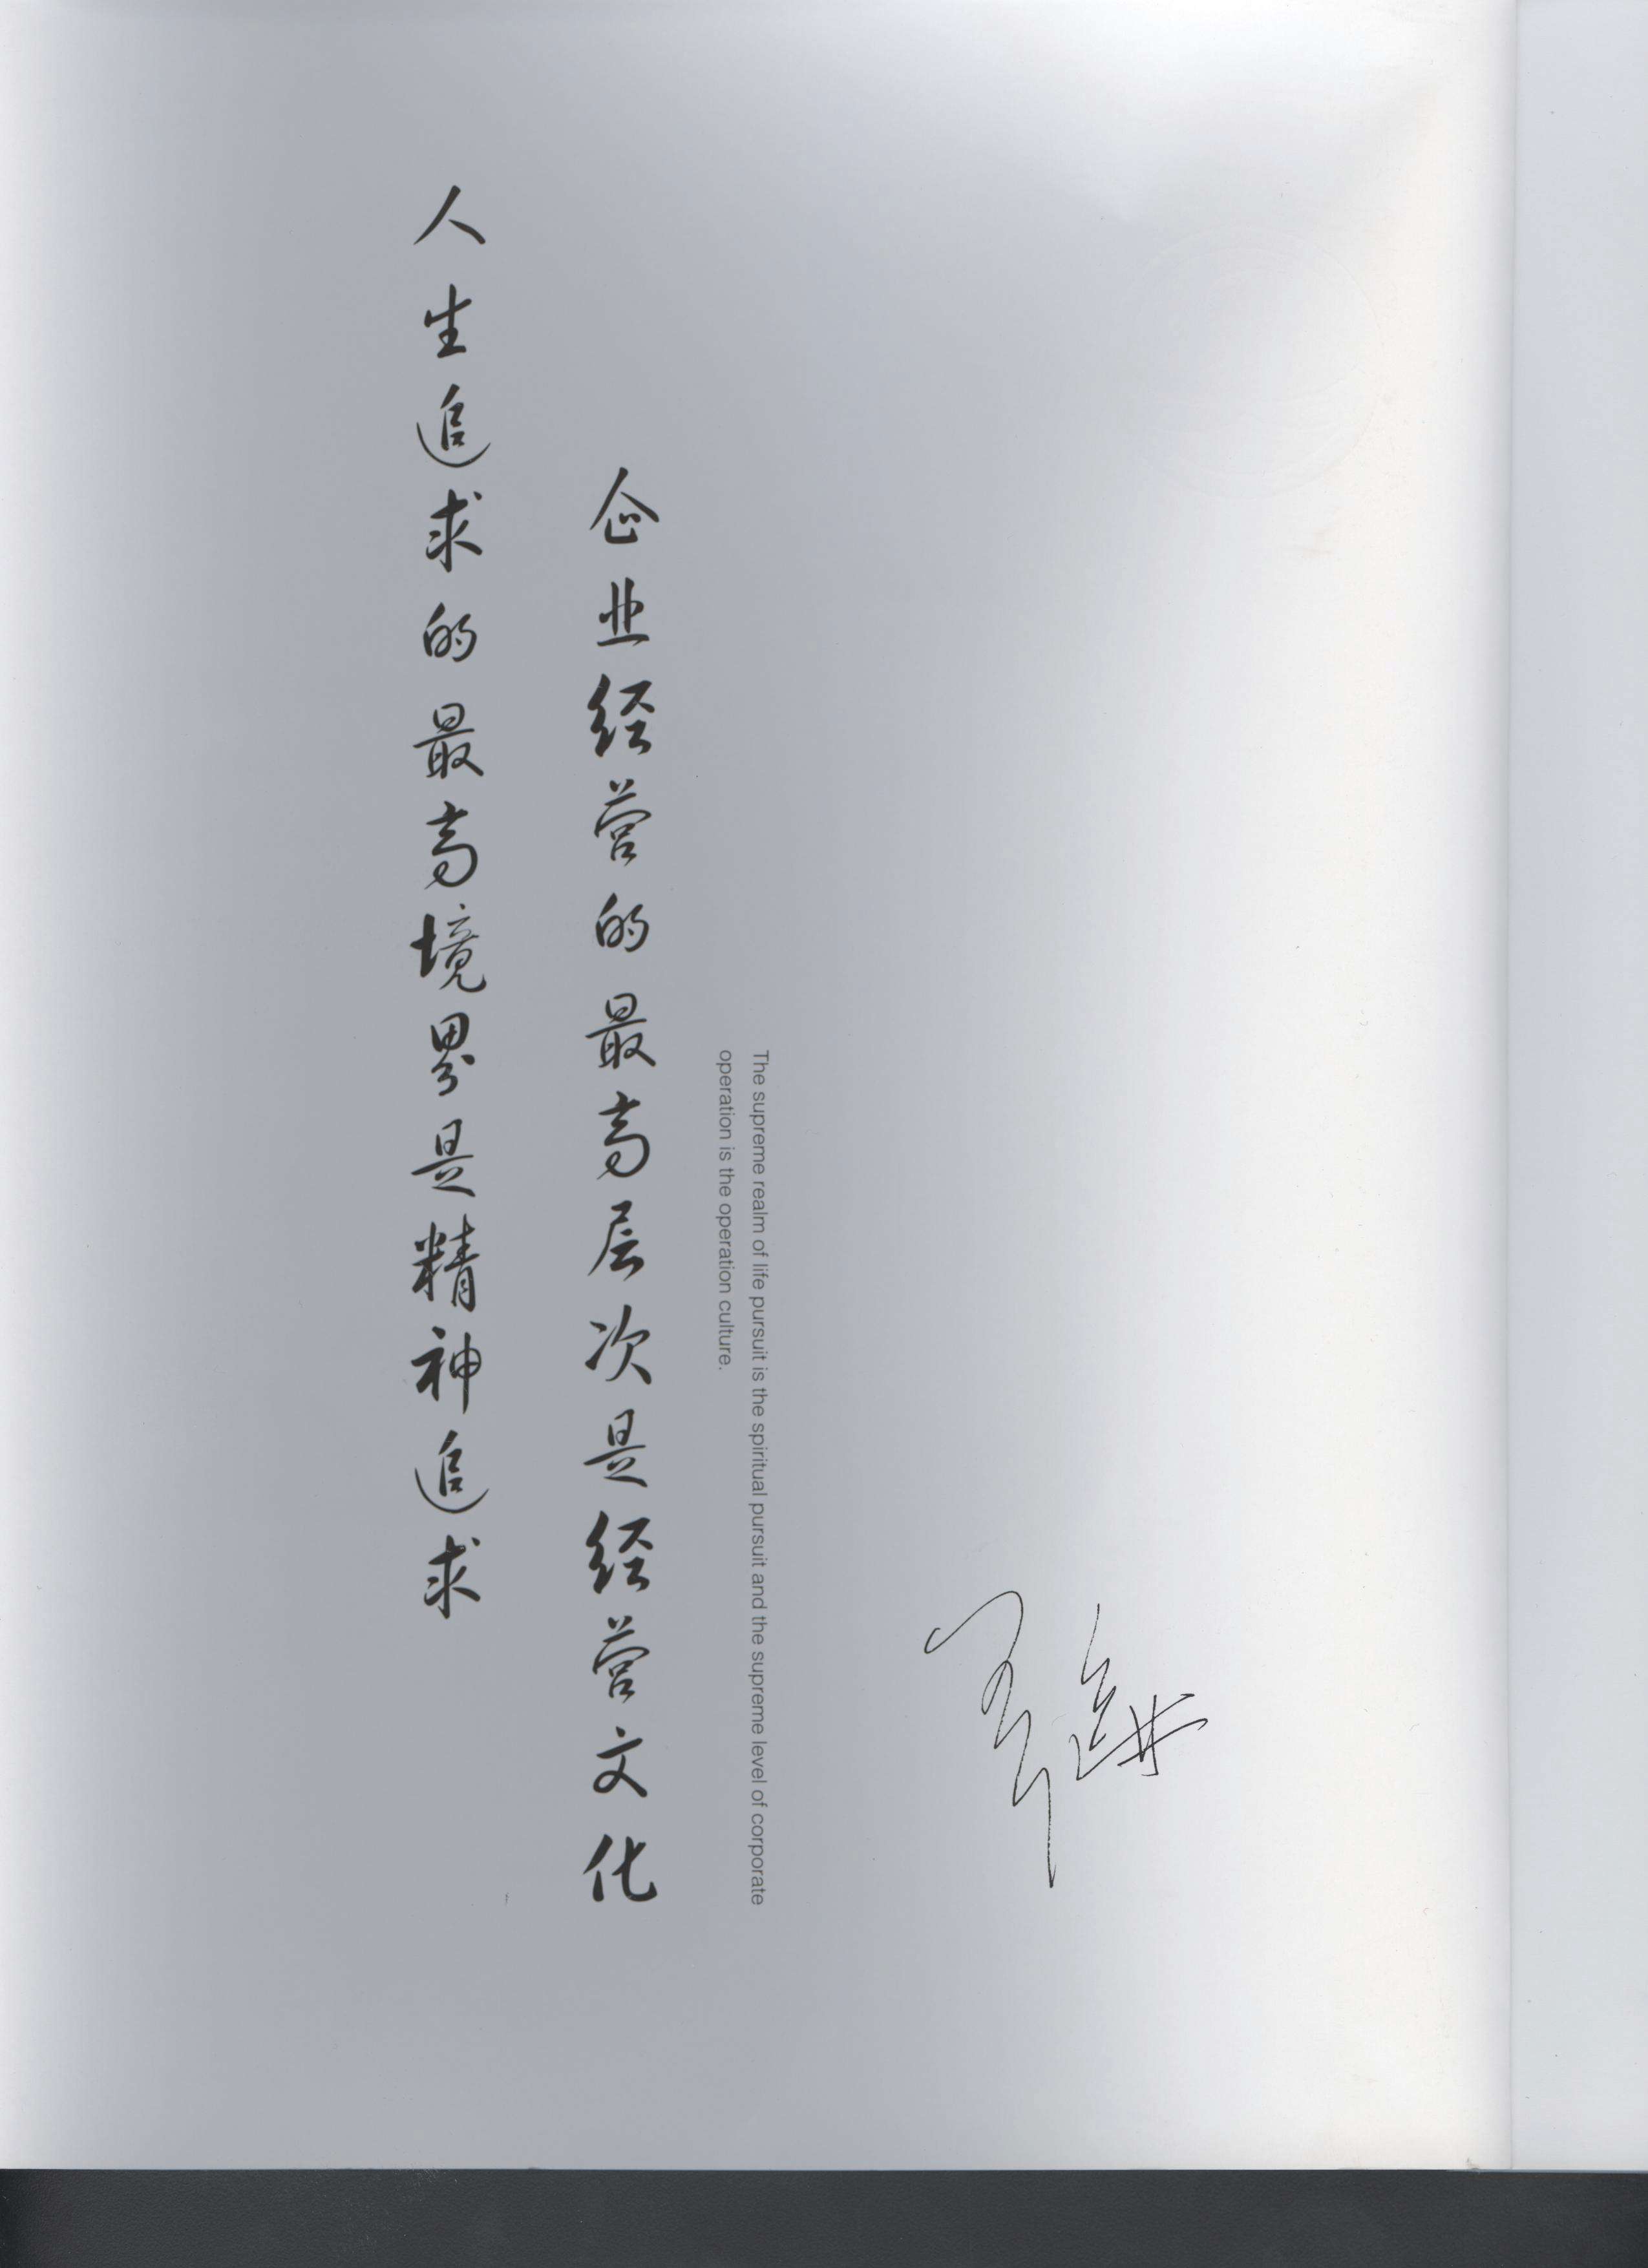 人生追求的最高境界是精神追求
企业经营的最高层次是经营文化
The supreme realm of life pursuit is the spiritual pursuit and the supreme level of corporate
operation is the operation culture.